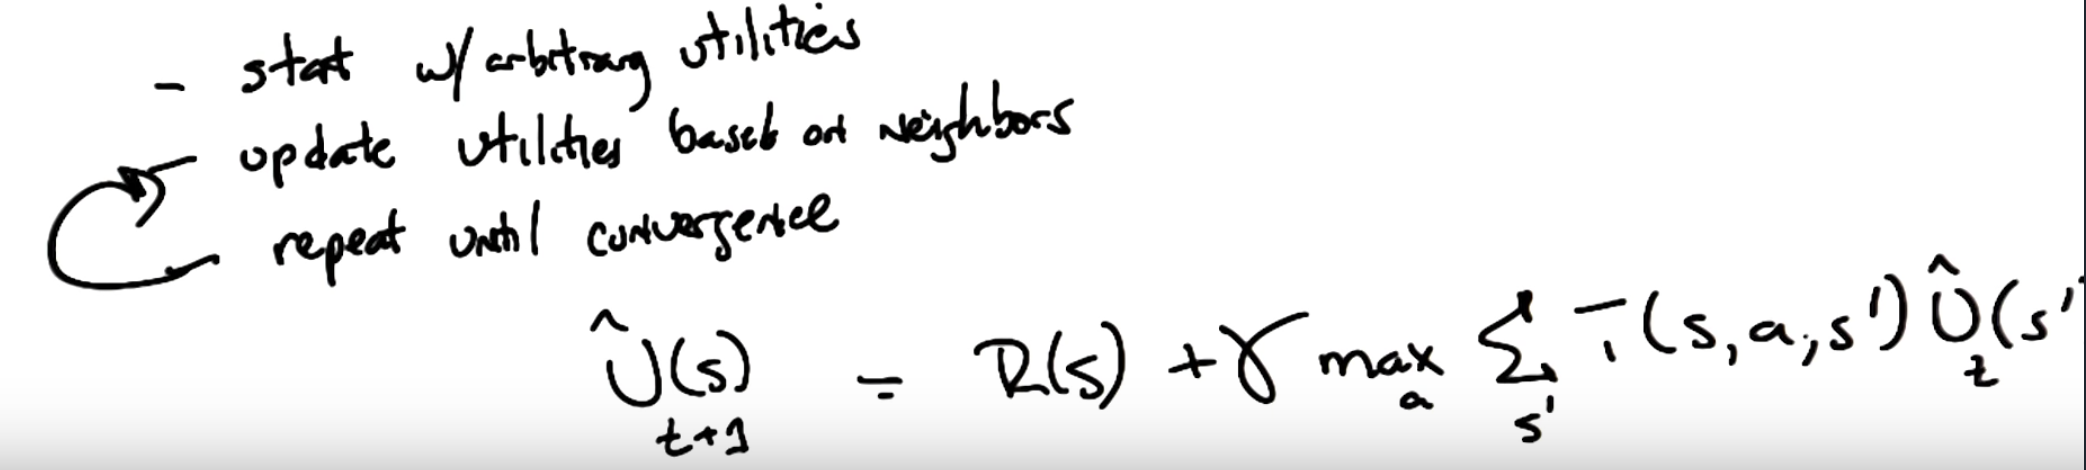 - start w/ arbitrary utilities
- update utilities based on neighbors
repeat until convergence
Û_{t+1}(s) = R(s) + γ max_a Σ_{s'} T(s, a, s') Û_t(s'